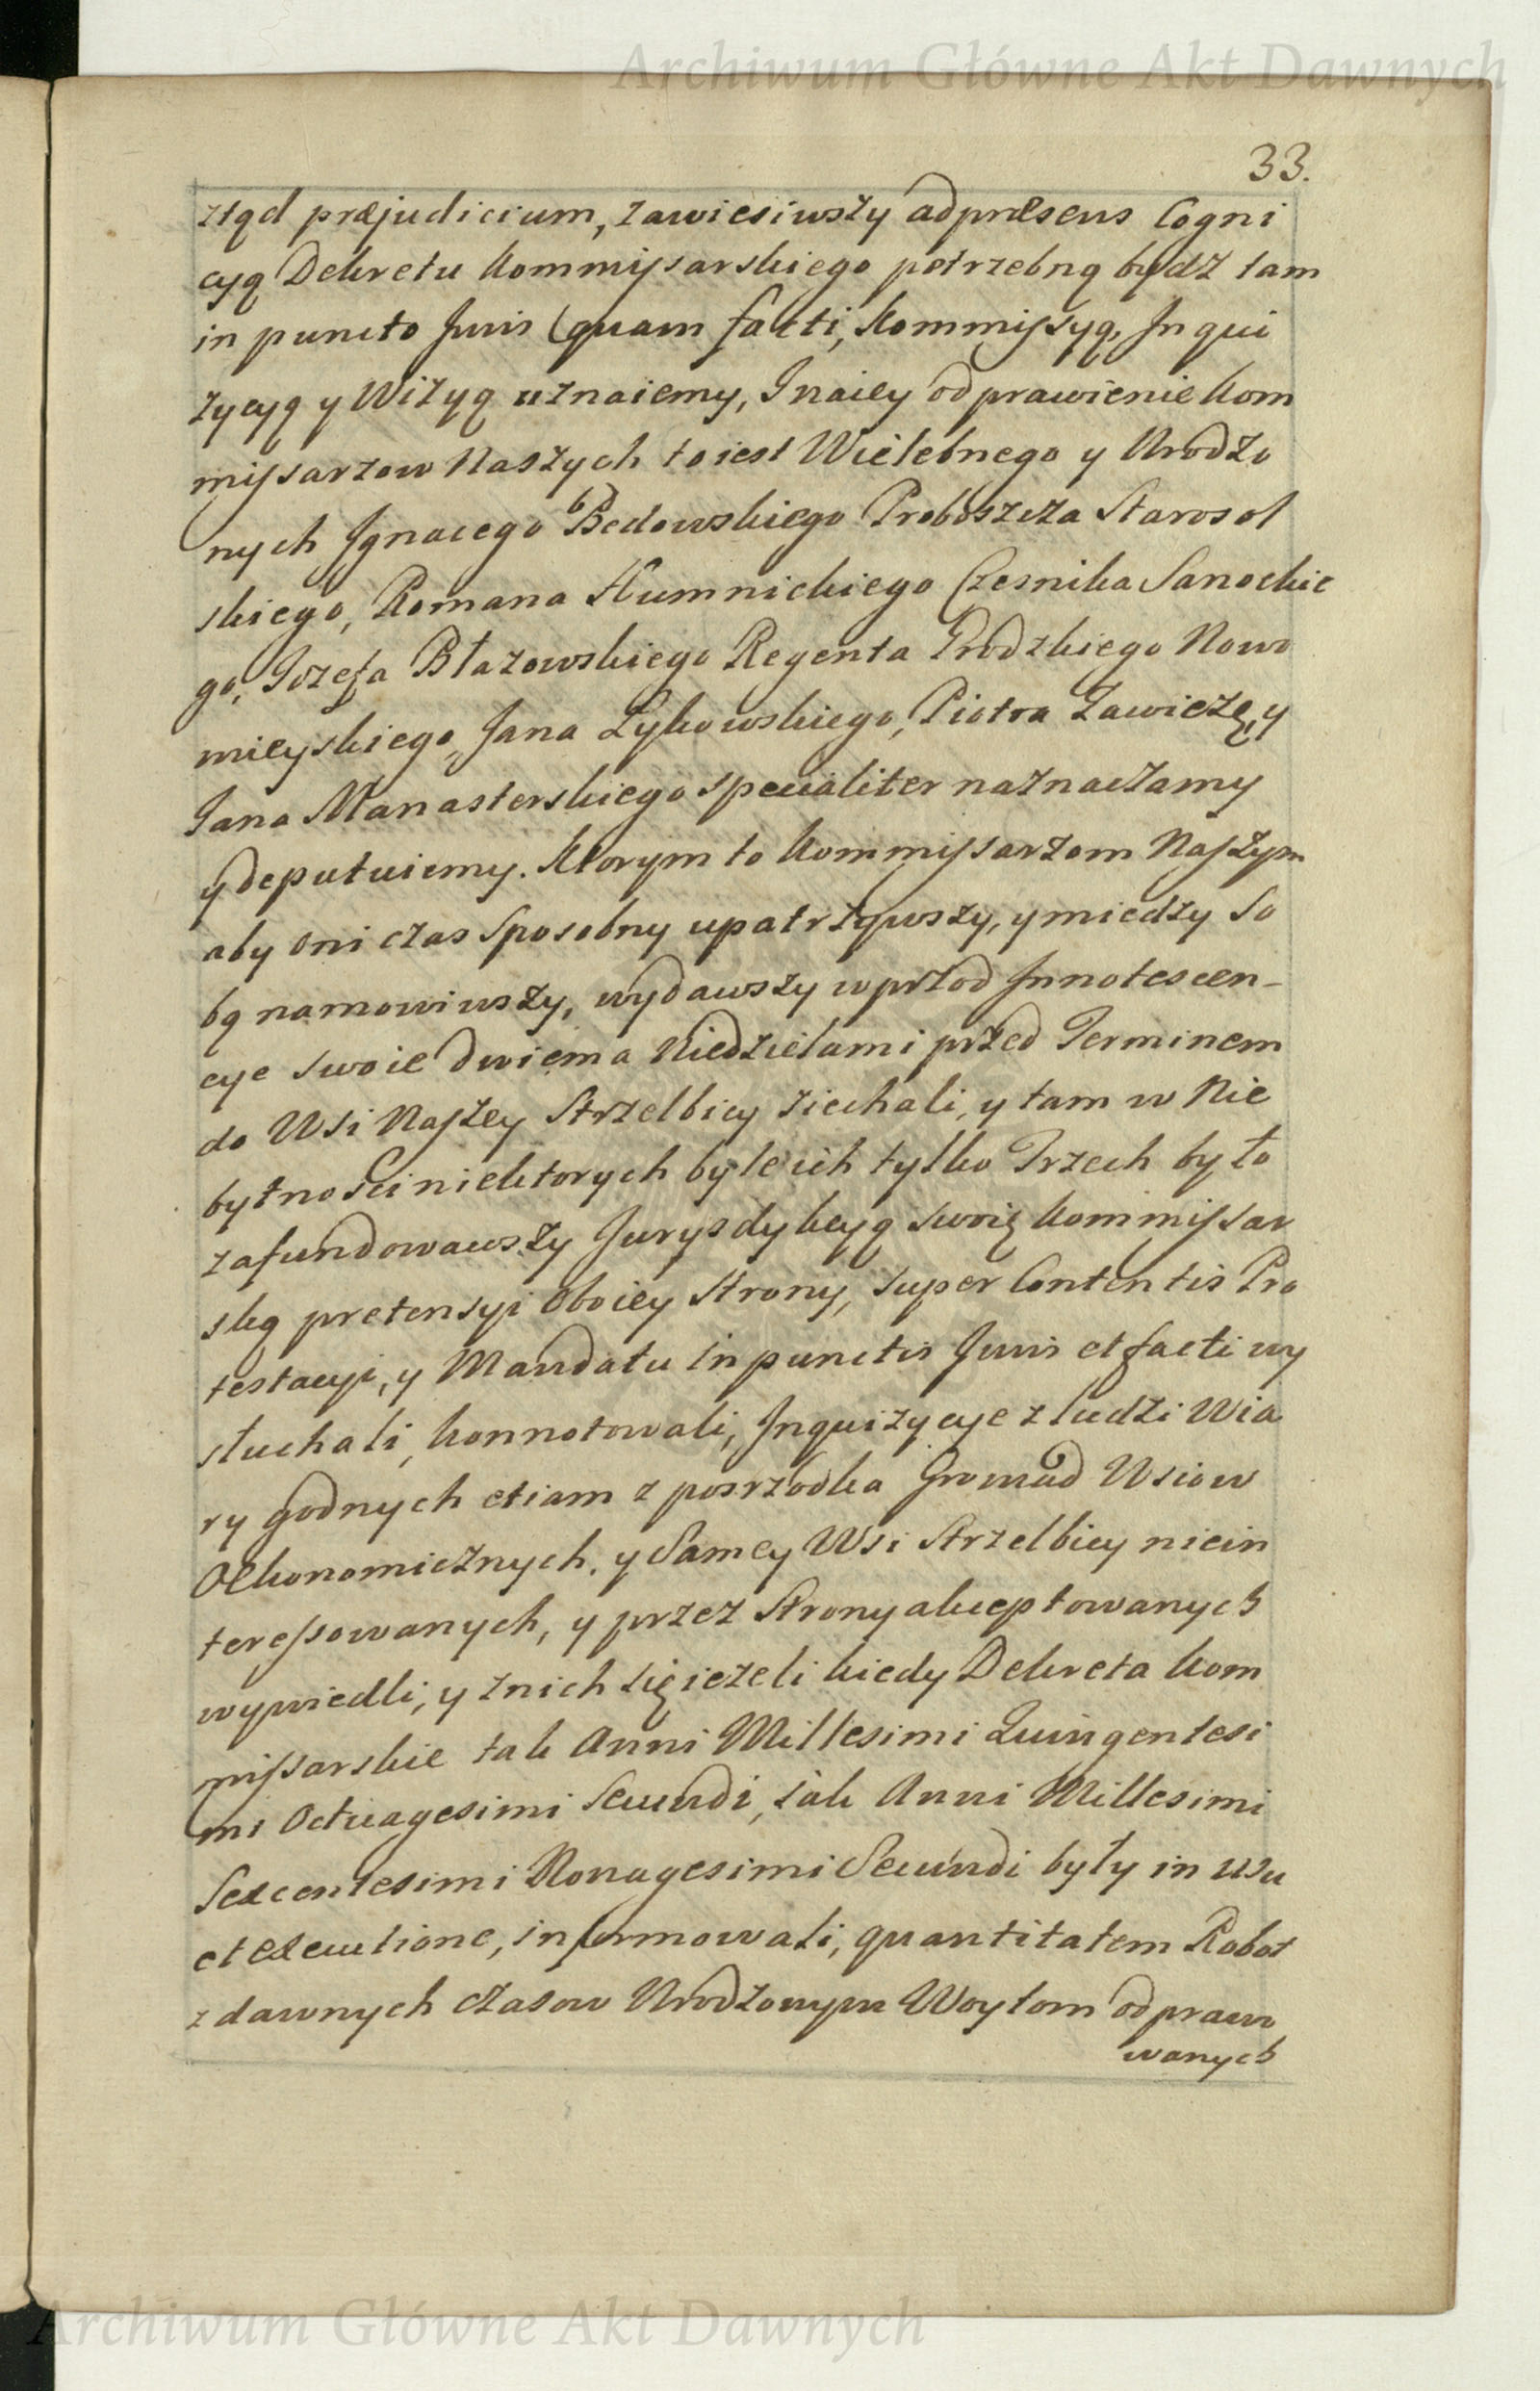 Archiwum Główne Akt Dawnych
33.
ztąd præjudicium, zawiesiwszy ad præsens Cogni
cyą Dekretu Kommissarskiego potrzebną bydz tam
in puncto Juris quam facti, Kommissyą, Inqui
zycyą y Wizyą uznaiemy, Inaiey odprawienie Kom
missarzow Naszych to iest Wielebnego y Urodzo
nych Ignacego Bedowskiego Proboszcza Starosol
skiego, Romana Humnickiego Czesnika Sanockie
go, Jozefa Błazowskiego Regenta Grodzkiego Nowo
mieyskiego, Jana Lykowskiego, Piotra Zawiezę, y
Jana Manasterskiego specialiter naznaczamy
y deputuiemy. Ktorym to Kommissarzom Naszym
aby oni czas sposobny upatrzywszy, y miedzy So
bą namowiwszy, wydawszy wprzod Innotescen-
cye swoie dwiema Niedzielami przed Terminem
do Wsi Naszey Strzelbicy ziechali, y tam w Nie
bytności niektorych byle ich tylko Trzech było
zafundowawszy Jurysdykcyą swoię Kommissar
ską pretensyi oboiey Strony, super Contentis Pro
testacyi, y Mandatu in punctis Juris et facti wy
słuchali, konnotowali, Inquizycye z ludzi Wia
ry godnych etiam z posrzodka Gromad Wsiow
Oekonomicznych, y Samey Wsi Strzelbicy niein
teressowanych, y przez Strony akceptowanych
wywiedli, y znich się iezeli kiedy Dekreta Kom
missarskie tak Anni Millesimi Quingentesi
mi Octuagesimi Secundi, iak Anni Millesimi
Sexcentesimi Nonagesimi Secundi były in usu
et executione, informowali, quantitatem Robot
z dawnych czasow Urodzonym Woytom odprawo
wanych
Archiwum Główne Akt Dawnych